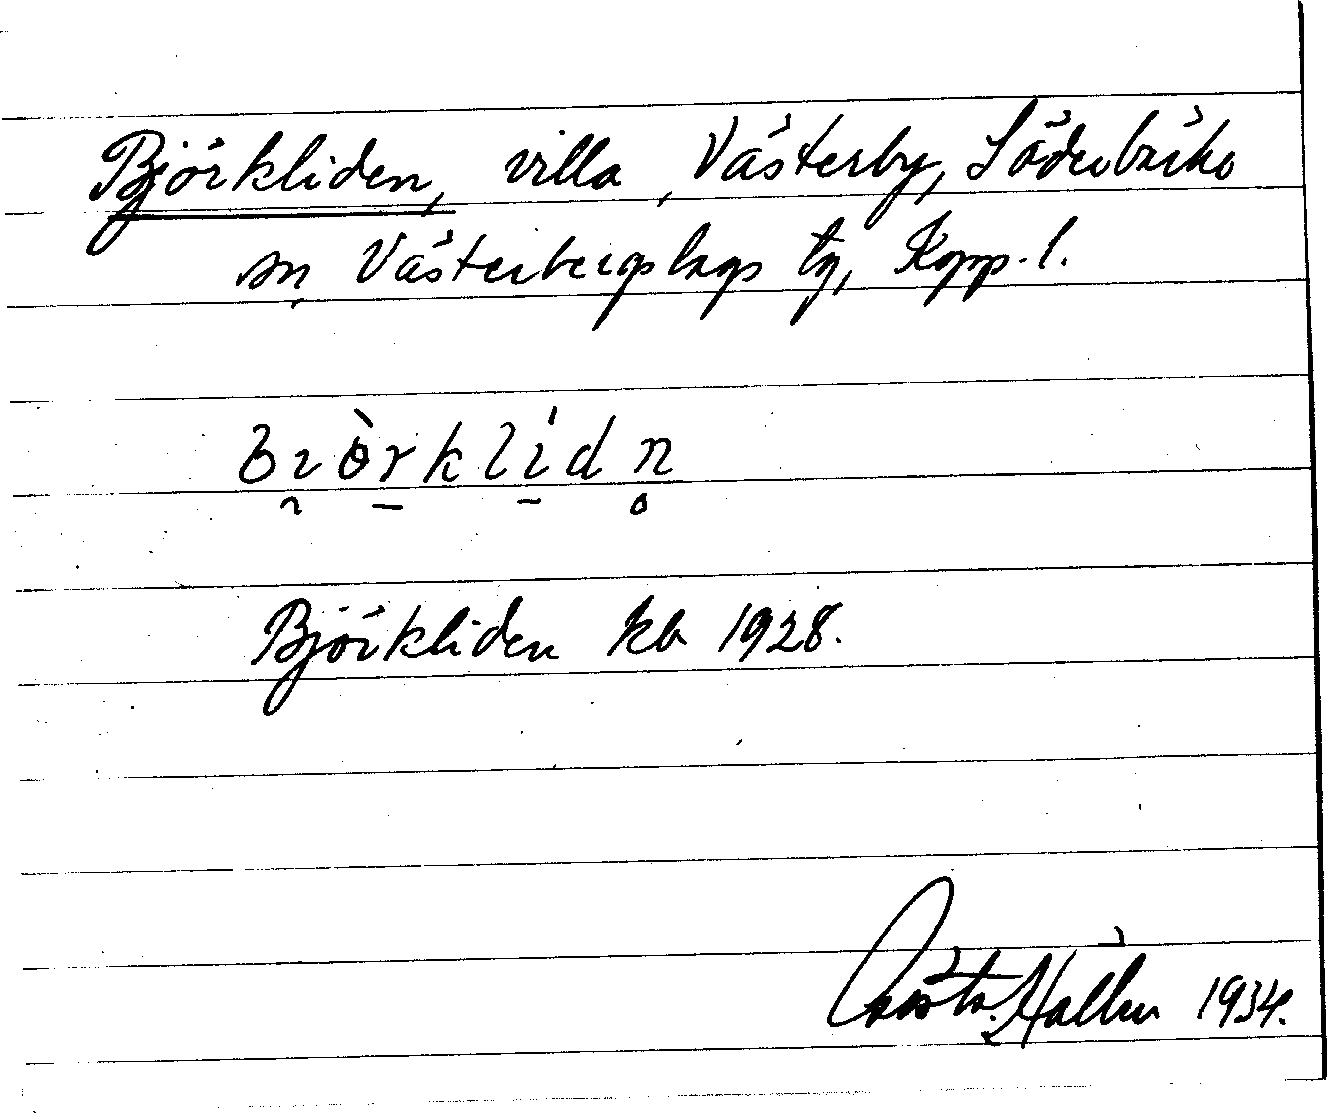 Björkliden, villa, Västerby, Söderbärke
sn, Västerbergslags tg, Kopp. l.
bɩörklidn̥
Björkliden kb 1928.
Hallén 1934.